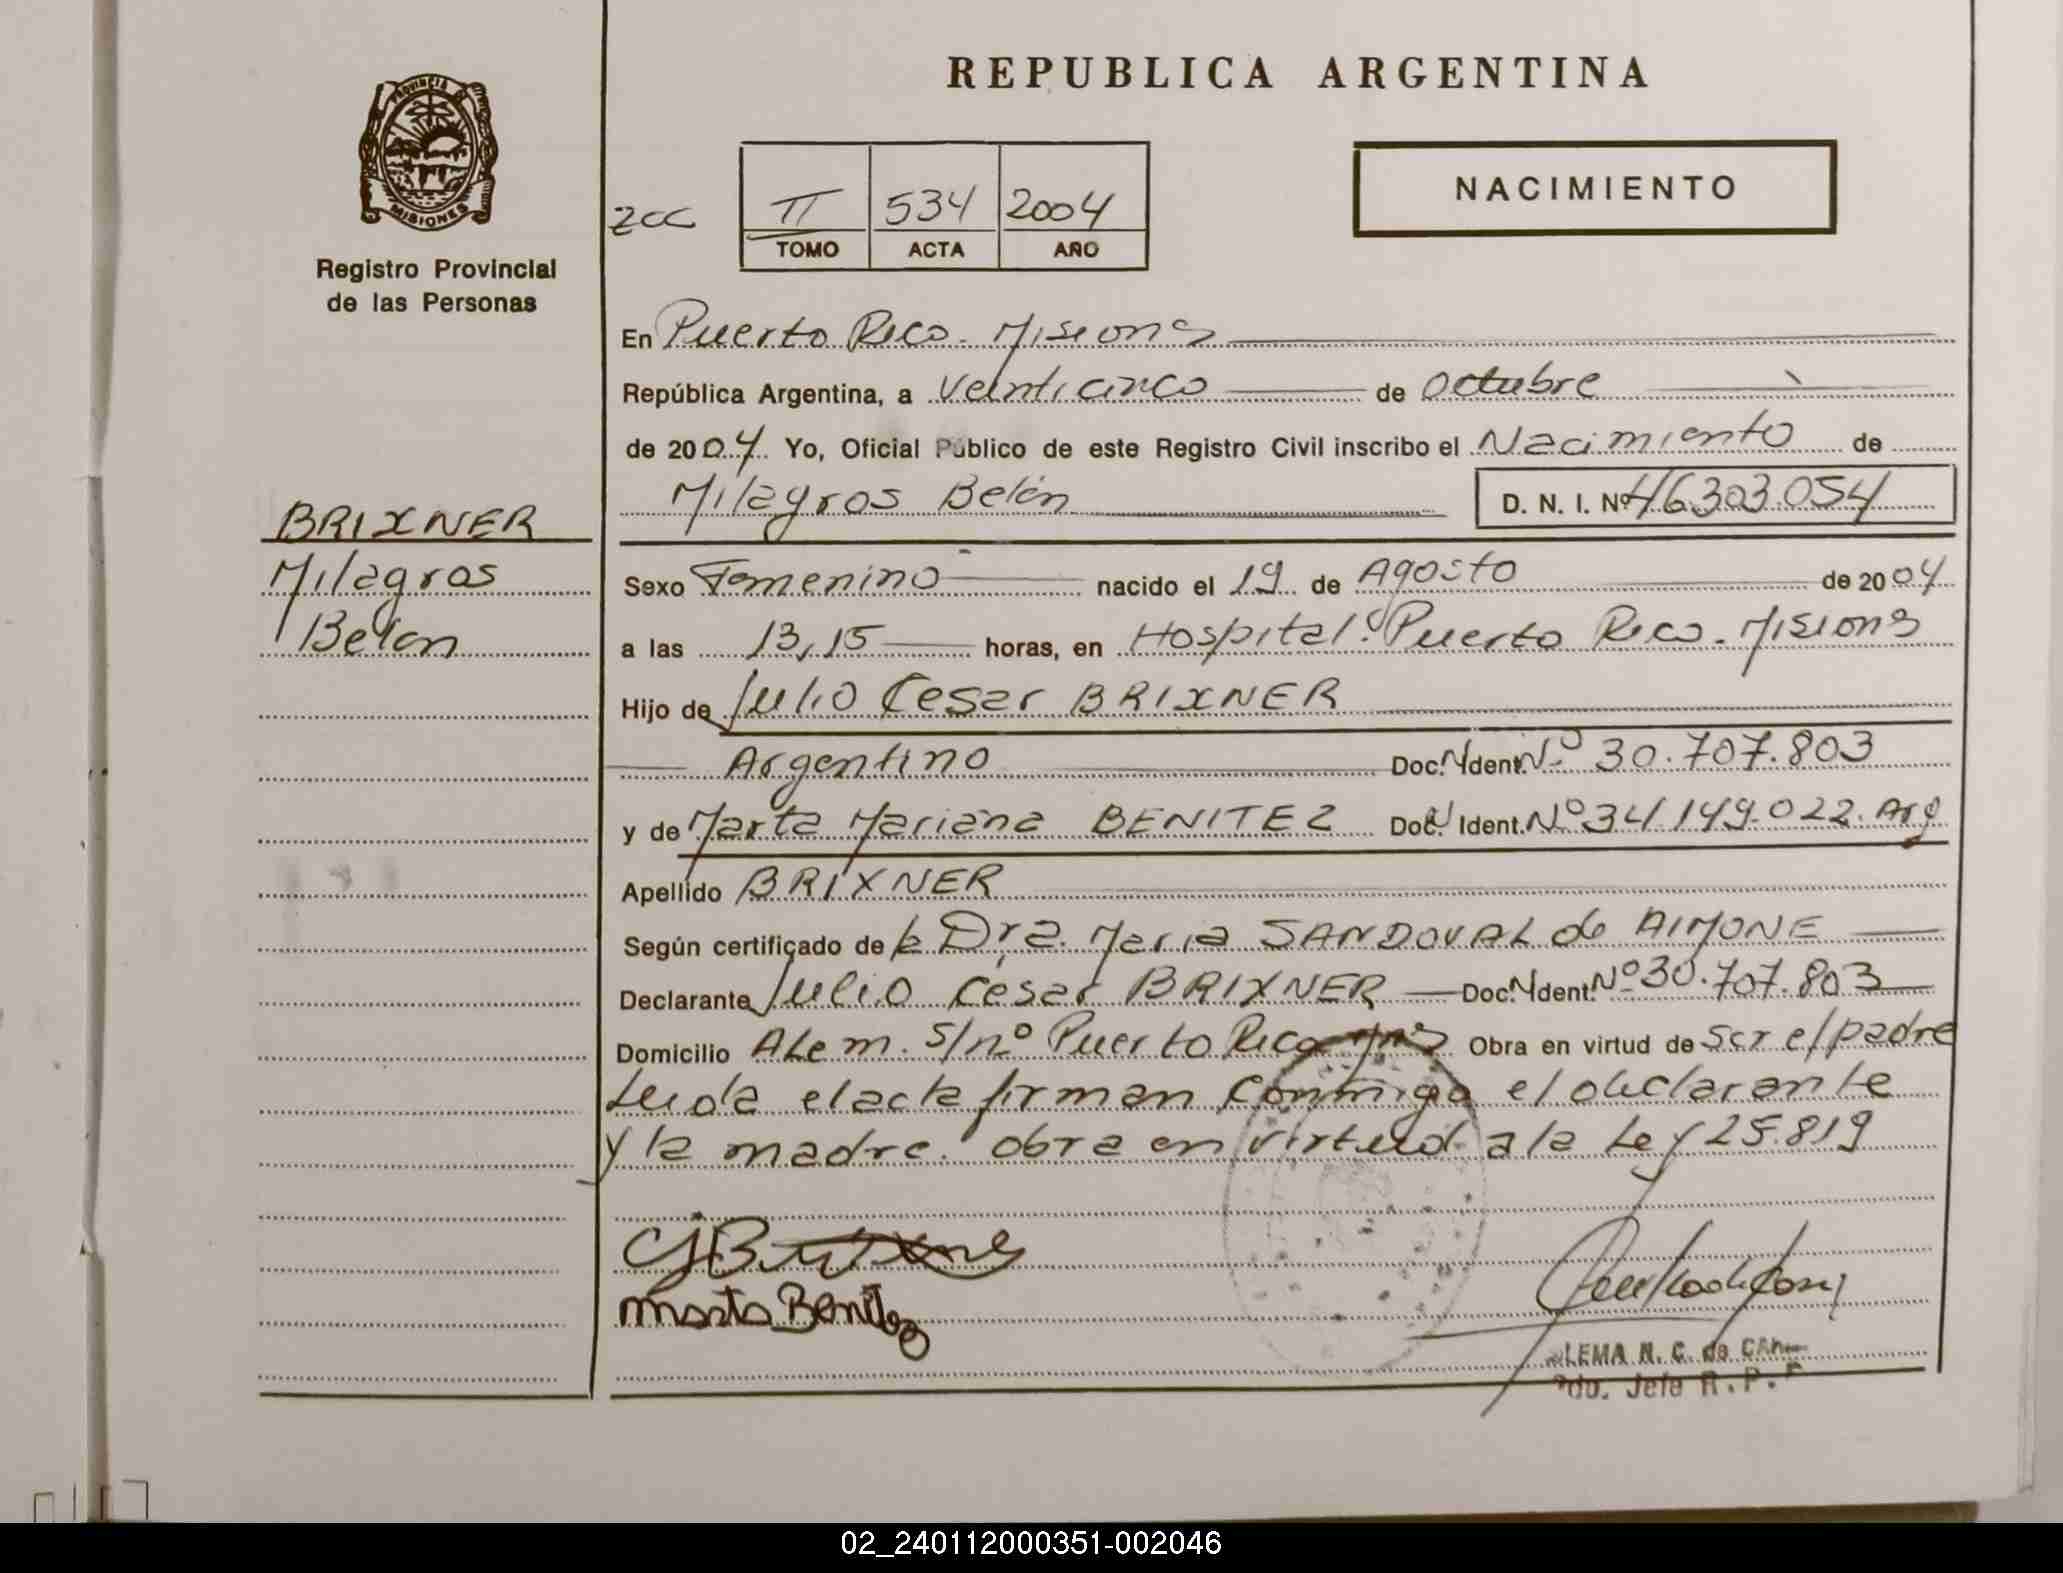 REPUBLICA ARGENTINA
PROVINCIA DE
MISIONES
Registro Provincial
de las Personas
NACIMIENTO
zcc
II 534 2004
TOMO ACTA AÑO
En Puerto Rico. Misiones
República Argentina, a veinticinco de Octubre
de 2004 Yo, Oficial Público de este Registro Civil inscribo el Nacimiento de
Milagros Belén D. N. I. Nº 46303.054
BRIXNER
Milagros
Belén
Sexo Femenino nacido el 19 de Agosto de 2004
a las 13,15 horas, en Hospital. Puerto Rico. Misiones
Hijo de Julio Cesar BRIXNER
Argentino Doc. Ident. Nº 30.707.803
y de Marta Mariana BENITEZ Doc. Ident. Nº 34149.022. Arg
Apellido BRIXNER
Según certificado de la Dra. Maria SANDOVAL de AIMONE
Declarante Julio César BRIXNER Doc. Ident. Nº 30.707.803
Domicilio ALem. S/nº Puerto Rico Mnes Obra en virtud de ser el padre
Leida el acta firman conmigo el declarante
y la madre. obra en virtud a la Ley 25.819
Marta Benitez
LEMA N. C. de
Jefe R. P.
02_240112000351-002046